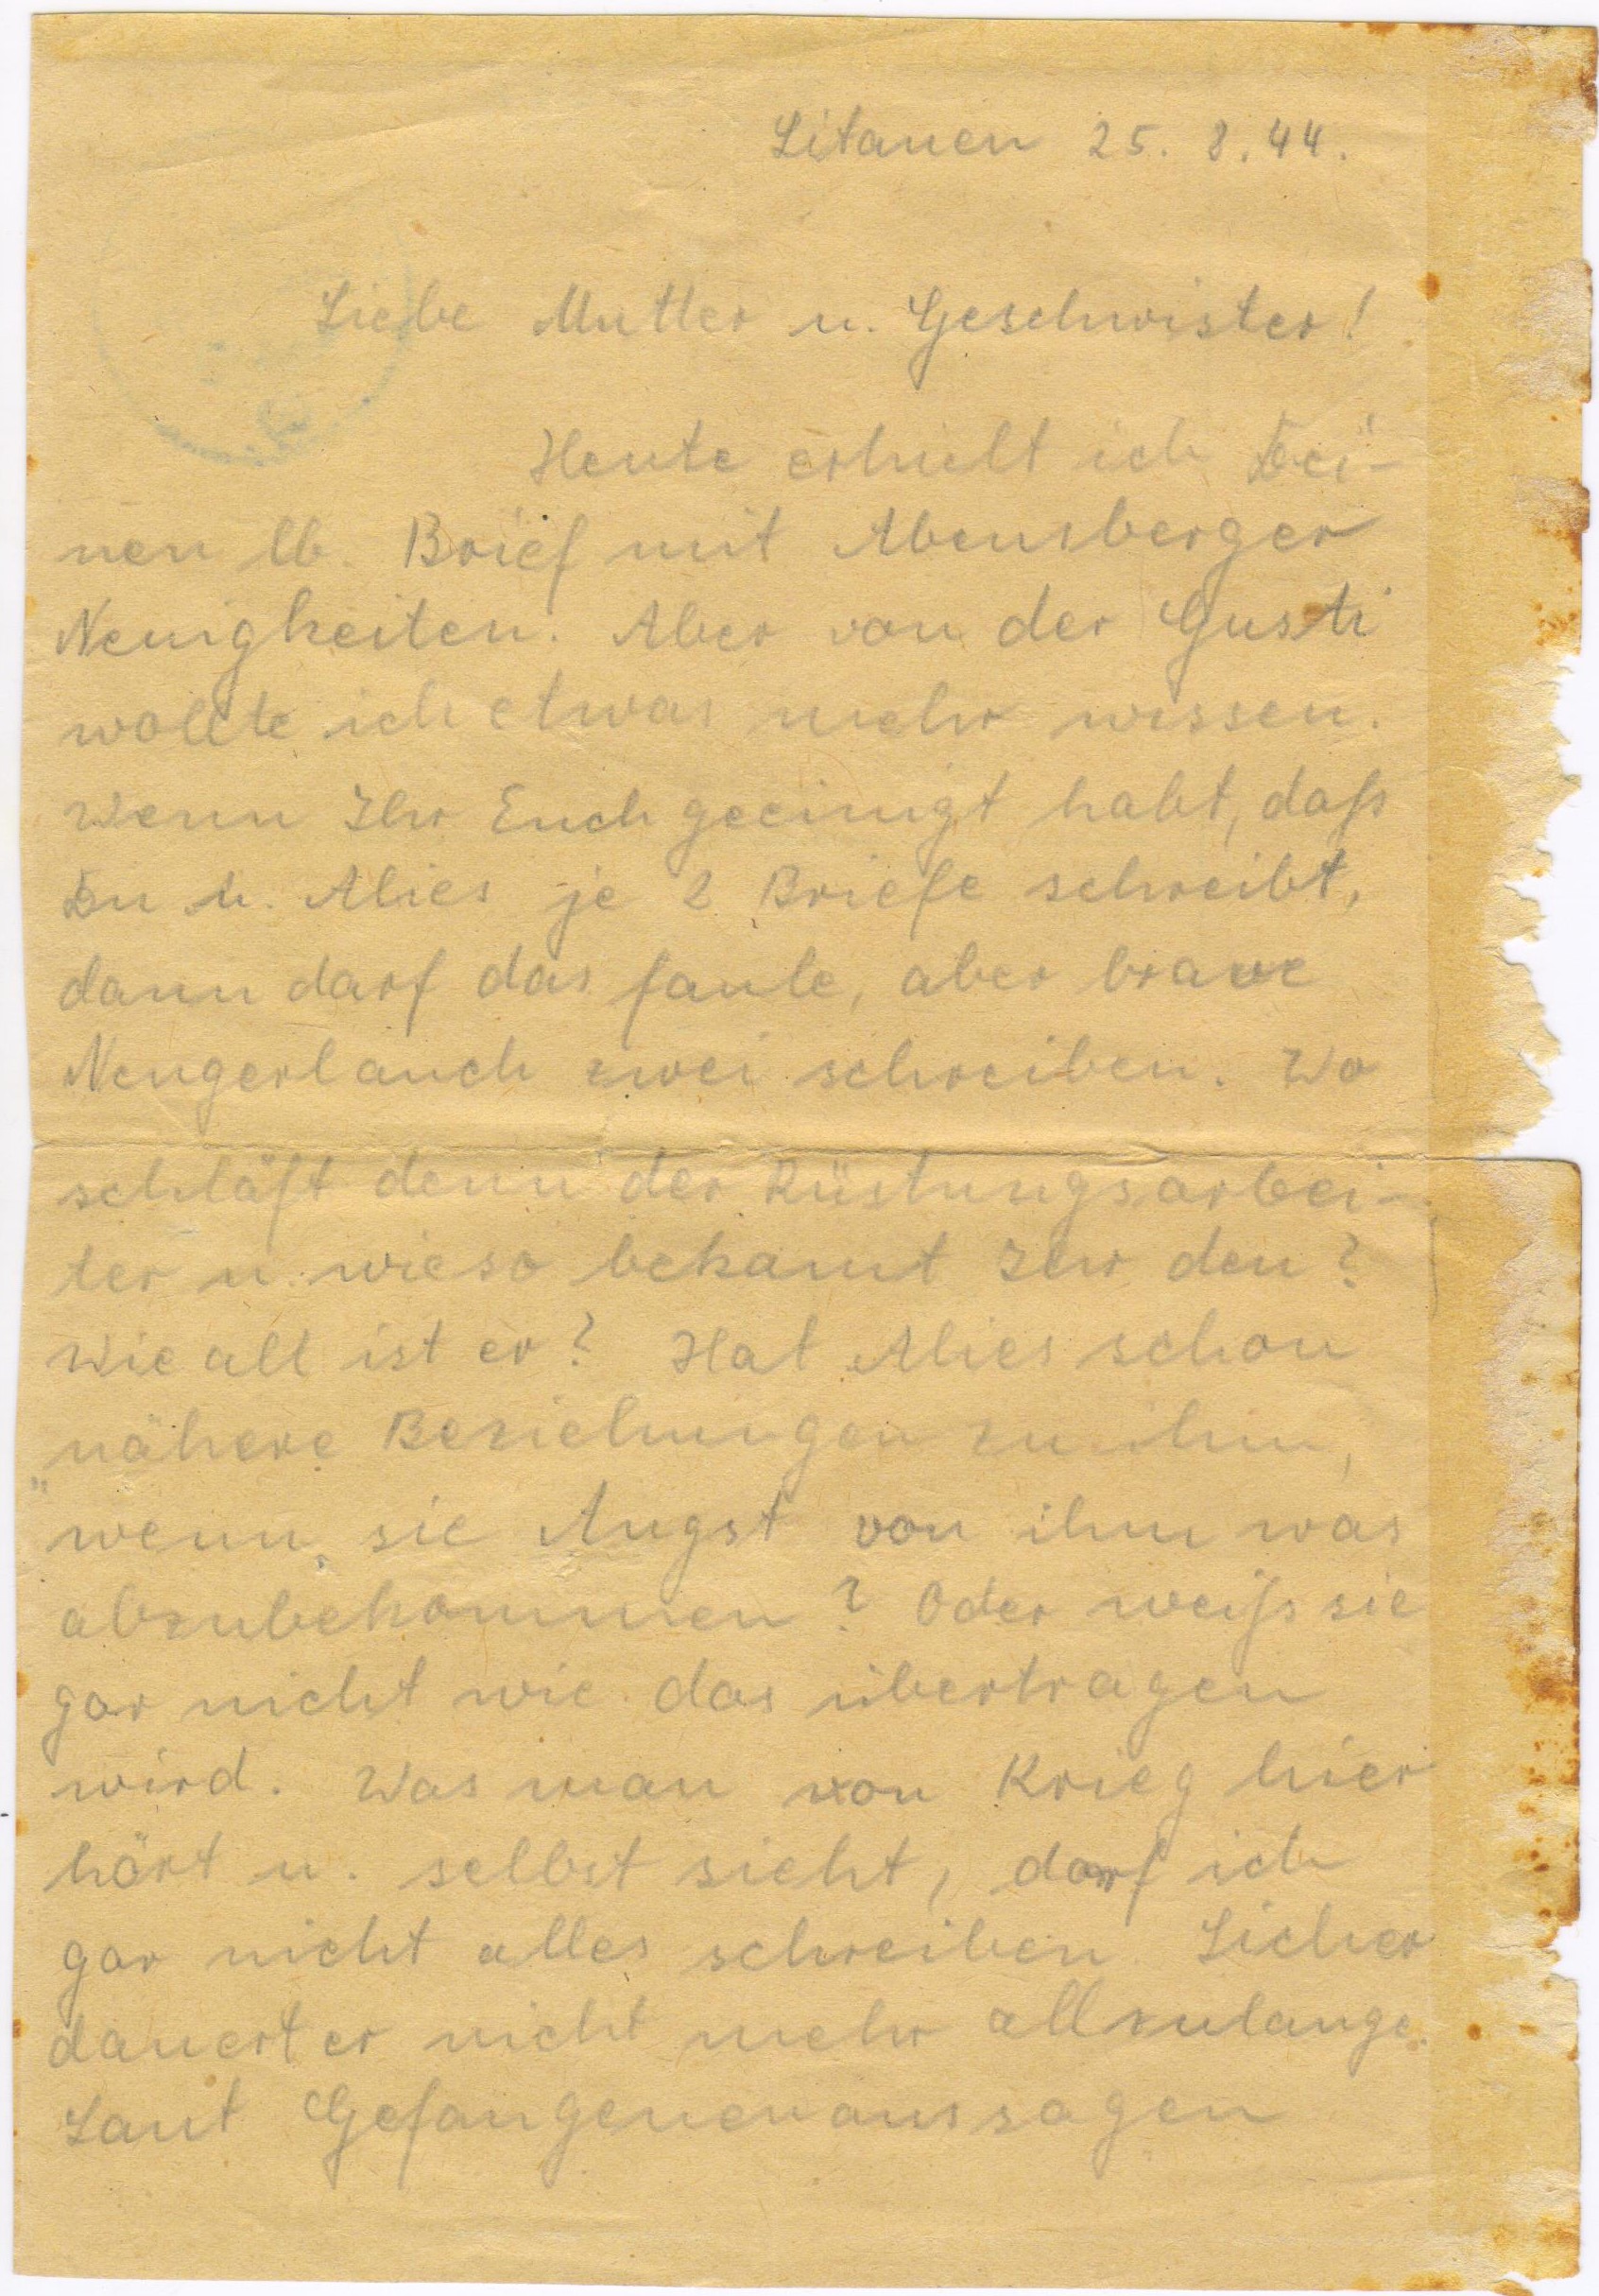 Litauen 25. 8. 44.
Liebe Mutter u. Geschwister!
Heute erhielt ich Dei-
nen lb. Brief mit Abensberger
Neuigkeiten. Aber von der Gusti
wollte ich etwas mehr wissen.
Wenn Ihr Euch geeinigt habt, daß
Du u. Mies je 2 Briefe schreibt,
dann darf das faule, aber brave
Neugerl auch zwei schreiben. Wo
schläft denn der Rüstungsarbei-
ter u. wieso bekamt Ihr den?
Wie alt ist er? Hat Mies schon
nähere Beziehungen zu ihm,
wenn sie Angst von ihm was
abzubekommen? Oder weiß sie
gar nicht wie das übertragen
wird. Was man von Krieg hier
hört u. selbst sieht, darf ich
gar nicht alles schreiben. Sicher
dauert er nicht mehr allzulange.
Laut Gefangenenaussagen